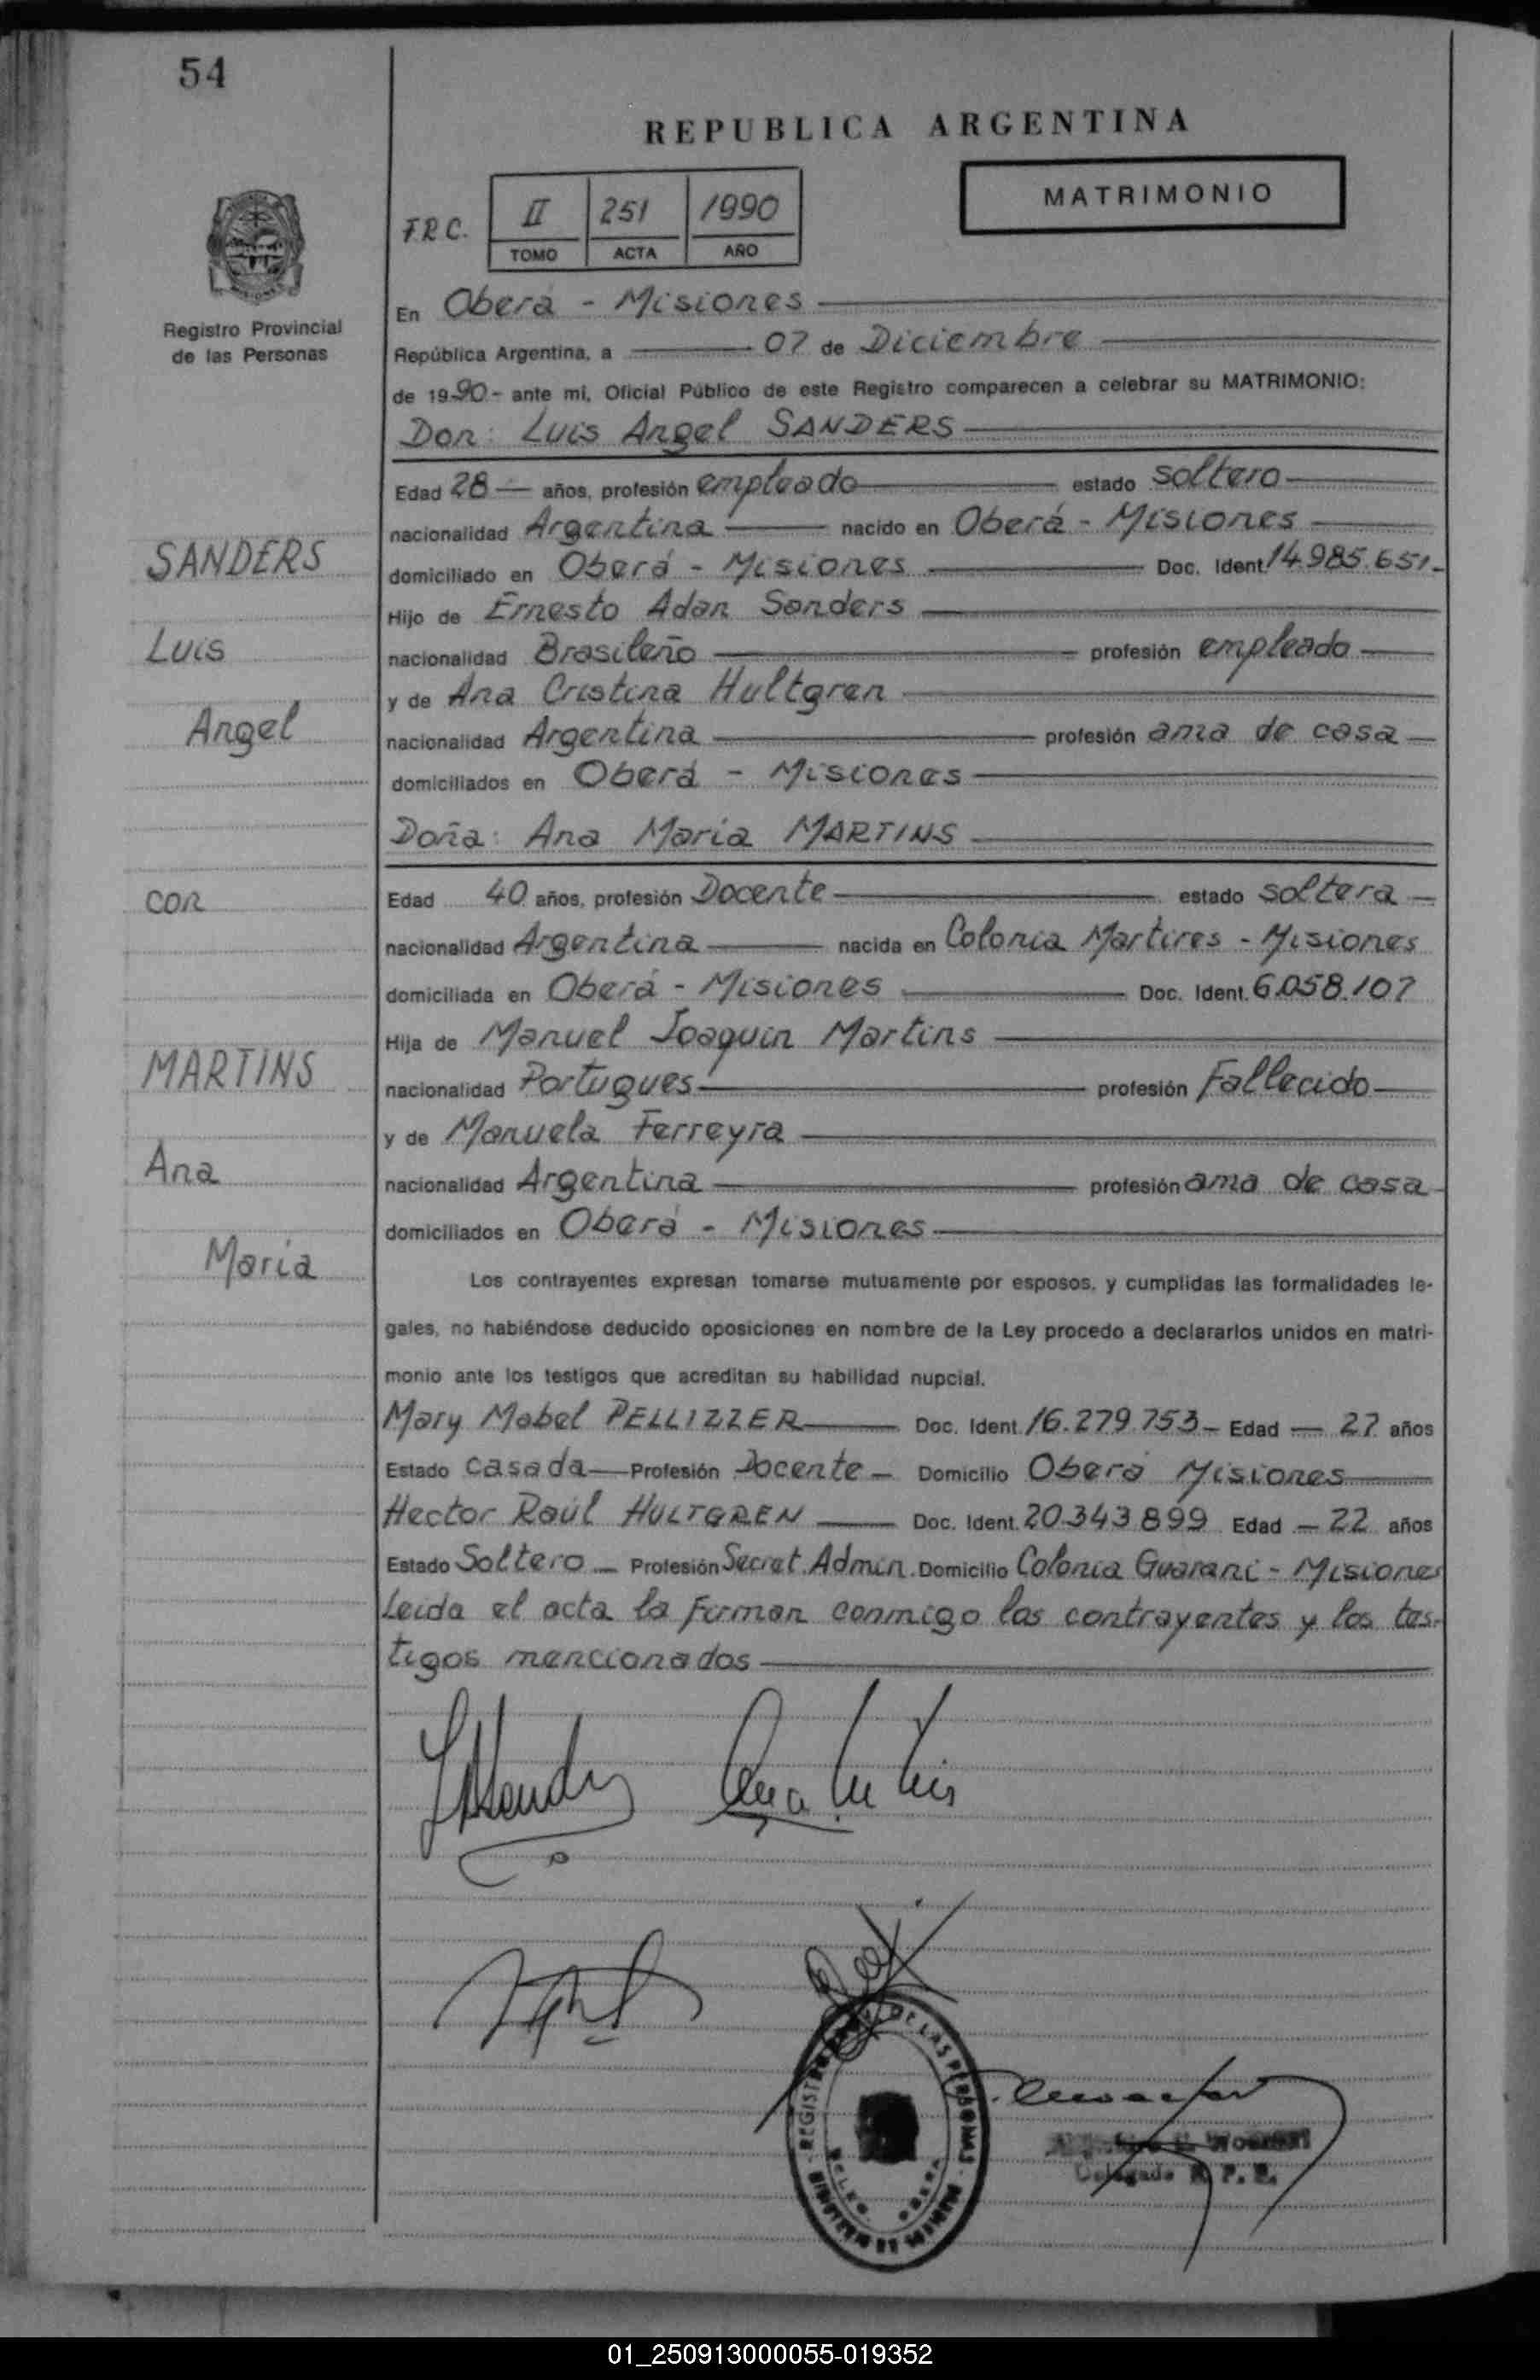 54
REPUBLICA ARGENTINA
MATRIMONIO
F.R.C.
II 251 1990
TOMO ACTA AÑO
Registro Provincial
de las Personas
En Oberá - Misiones
República Argentina, a 07 de Diciembre
de 1990 - ante mi, Oficial Público de este Registro comparecen a celebrar su MATRIMONIO:
Don: Luis Angel SANDERS
Edad 28 años, profesión empleado estado soltero
nacionalidad Argentina nacido en Oberá - Misiones
SANDERS
domiciliado en Oberá - Misiones Doc. Ident. 14.985.651-
Hijo de Ernesto Adan Sanders
Luis
nacionalidad Brasileño profesión empleado
y de Ana Cristina Hultgren
Angel
nacionalidad Argentina profesión ama de casa
domiciliados en Oberá - Misiones
Doña: Ana Maria MARTINS
con
Edad 40 años, profesión Docente estado soltera
nacionalidad Argentina nacida en Colonia Martires - Misiones
domiciliada en Oberá - Misiones Doc. Ident. 6.058.107
Hija de Manuel Joaquin Martins
MARTINS
nacionalidad Portugues profesión Fallecido
y de Manuela Ferreyra
Ana
nacionalidad Argentina profesión ama de casa
domiciliados en Oberá - Misiones
Maria
Los contrayentes expresan tomarse mutuamente por esposos, y cumplidas las formalidades le-
gales, no habiéndose deducido oposiciones en nombre de la Ley procedo a declararlos unidos en matri-
monio ante los testigos que acreditan su habilidad nupcial.
Mary Mabel PELLIZZER Doc. Ident. 16.279.753 - Edad 27 años
Estado casada Profesión Docente - Domicilio Oberá Misiones
Hector Raúl HULTGREN Doc. Ident. 20.343.899 Edad 22 años
Estado Soltero - Profesión Secret. Admin. Domicilio Colonia Guarani - Misiones
Leida el acta la firman conmigo los contrayentes y los tes-
tigos mencionados
REGISTRO DE LAS PERSONAS
Delegada R. P. P.
01_250913000055-019352